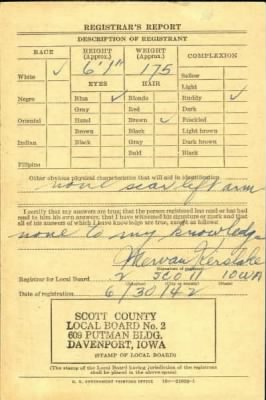 REGISTRAR'S REPORT
DESCRIPTION OF REGISTRANT
RACE HEIGHT (Approx.) WEIGHT (Approx.) COMPLEXION
6' 1" 175
White ✓ Sallow
EYES HAIR Light
Negro Blue ✓ Blonde Ruddy ✓
Gray Red Dark
Oriental Hazel Brown ✓ Freckled
Brown Black Light brown
Indian Black Gray Dark brown
Bald Black
Filipino
Other obvious physical characteristics that will aid in identification
scar left arm
I certify that my answers are true; that the person registered has read or has had
read to him his own answers; that I have witnessed his signature or mark and that
all of his answers of which I have knowledge are true, except as follows:
none to my knowledge
Kerslake
Registrar for Local Board 2 SCOTT IOWA
Date of registration 6/30/42
SCOTT COUNTY
LOCAL BOARD No. 2
609 PUTMAN BLDG.
DAVENPORT, IOWA
(STAMP OF LOCAL BOARD)
(The stamp of the Local Board having jurisdiction of the registrant
shall be placed in the above space)
U. S. GOVERNMENT PRINTING OFFICE